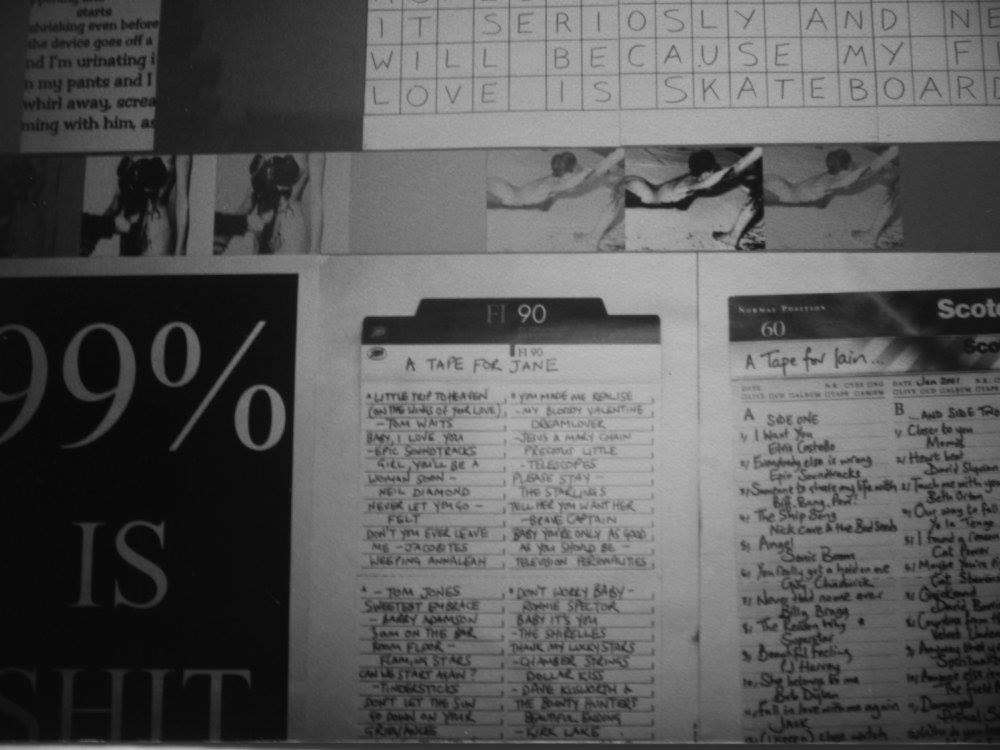 starts
shrieking even before
the device goes off a
nd I'm urinating i
n my pants and I
whirl away, screa
ming with him, as
IT SERIOSLY AND NE
WILL BECAUSE MY FI
LOVE IS SKATEBOARD
99%
IS
SHIT
FI 90
FI 90
A TAPE FOR JANE
A LITTLE TRIP TO HEAVEN
(ON THE WINGS OF YOUR LOVE)
- TOM WAITS
BABY, I LOVE YOU
- EPIC SOUNDTRACKS
GIRL, YOU'LL BE A
WOMAN SOON -
NEIL DIAMOND
NEVER LET YOU GO -
FELT
DON'T YOU EVER LEAVE
ME - JACOBITES
WEEPING ANNALEAH
- TOM JONES
SWEETEST EMBRACE
- BARRY ADAMSON
3AM ON THE BAR
ROOM FLOOR -
FLAMING STARS
CAN WE START AGAIN?
- TINDERSTICKS
DON'T LET THE SUN
GO DOWN ON YOUR
GRIEVANCES
YOU MADE ME REALISE
- MY BLOODY VALENTINE
DREAMLOVER
- JESUS & MARY CHAIN
PRECIOUS LITTLE
- TELESCOPES
PLEASE STAY -
THE STARLINGS
TELL HER YOU WANT HER
- BRAVE CAPTAIN
BABY YOU'RE ONLY AS GOOD
AS YOU SHOULD BE -
TELEVISION PERSONALITIES
DON'T WORRY BABY -
RONNIE SPECTOR
BABY IT'S YOU
- THE SHIRELLES
THANK MY LUCKY STARS
- CHAMBER STRINGS
DOLLAR KISS
- DAVE KUSWORTH &
THE BOUNTY HUNTERS
BEAUTIFUL ENDING
- KIRK LAKE
NORMAL POSITION
60
Scotc
Sco
A Tape for Iain...
DATE Jan 2001
A SIDE ONE
1, I Want You
Elvis Costello
2, Everybody else is wrong
Epic Soundtracks
3, Someone to share my life with
Bill Bang, Pow!
4, The Ship Song
Nick Cave & the Bad Seeds
5, Angel
Sonic Boom
6, You really got a hold on me
Cat Chadwick
7, Never Had no one ever
Billy Bragg
8, The Reason Why
Superstar
9, Beautiful Feeling
PJ Harvey
10, She belongs to me
Bob Dylan
11, Fall in love with me again
Jack
B ...AND SIDE TWO
1, Closer to you
Momus
2, Heart beat
David Sylvian
Touch me with your
Beth Orton
Our way to fall
Yo la Tengo
5, I found a reason
Cat Power
6, Maybe You're R
Cat Stevens
Velvet Under